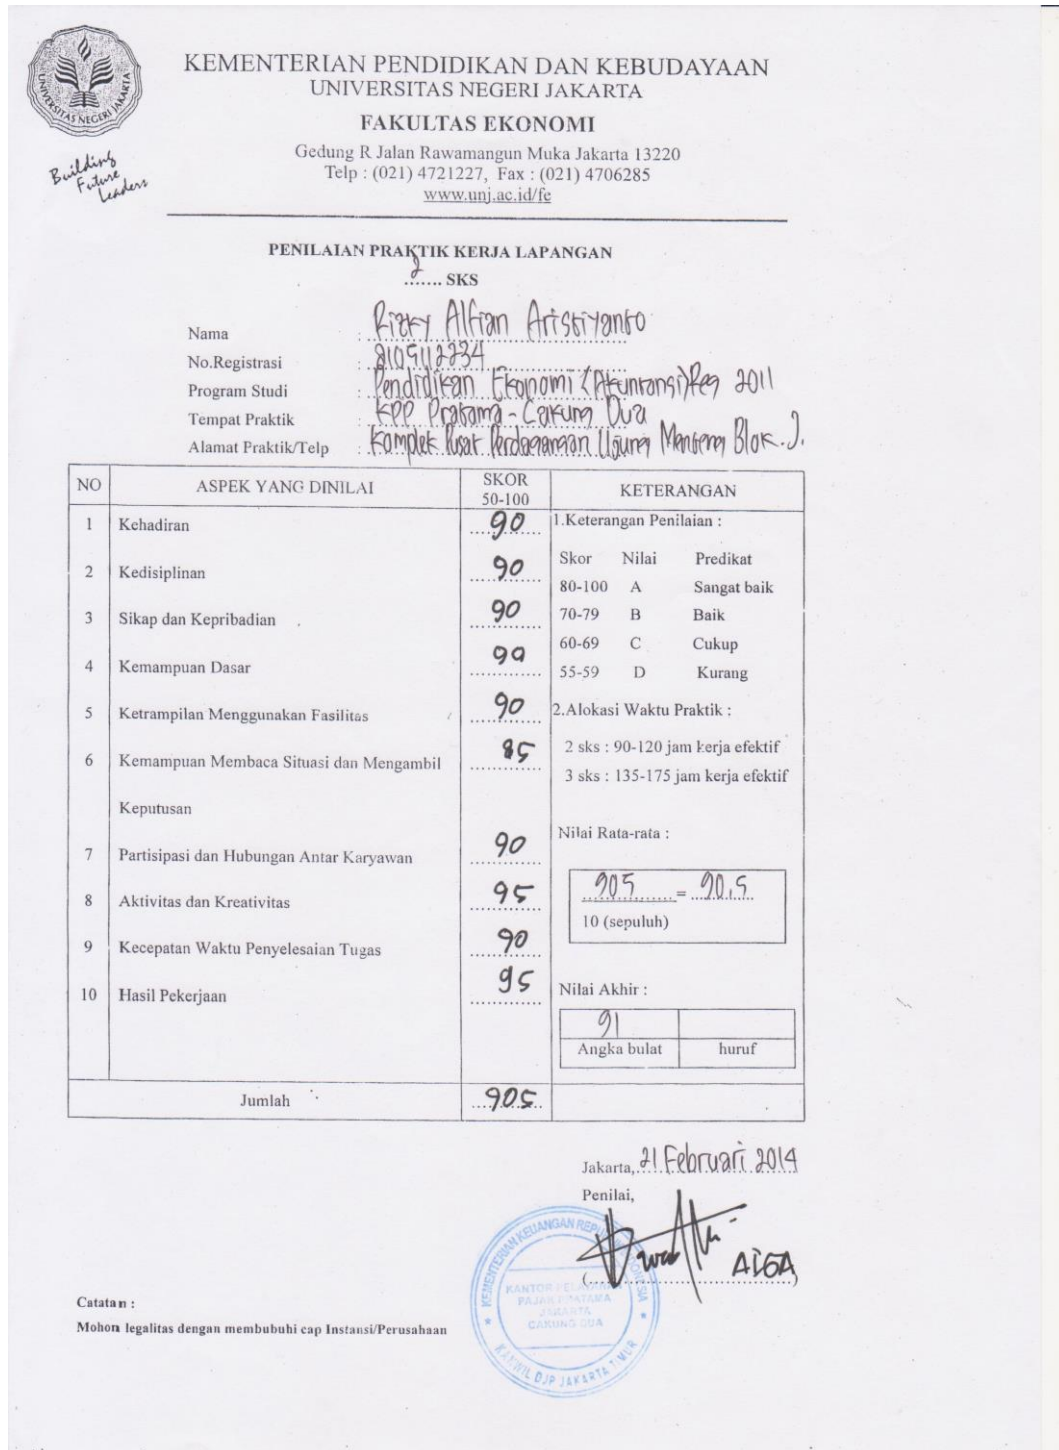 UNIVERSITAS NEGERI JAKARTA
Building
Future
Leaders
KEMENTERIAN PENDIDIKAN DAN KEBUDAYAAN
UNIVERSITAS NEGERI JAKARTA
FAKULTAS EKONOMI
Gedung R Jalan Rawamangun Muka Jakarta 13220
Telp : (021) 4721227, Fax : (021) 4706285
www.unj.ac.id/fe
PENILAIAN PRAKTIK KERJA LAPANGAN
2 SKS
Nama : Rizky Alfian Aristiyanto
No.Registrasi : 8105112234
Program Studi : Pendidikan Ekonomi (Akuntansi) Reg 2011
Tempat Praktik : KPP Pratama - Cakung Dua
Alamat Praktik/Telp : Komplek Pusat Perdagangan Ujung Menteng Blok. J.
NO ASPEK YANG DINILAI SKOR 50-100 KETERANGAN
1 Kehadiran 90 1.Keterangan Penilaian :
Skor Nilai Predikat
2 Kedisiplinan 90
80-100 A Sangat baik
3 Sikap dan Kepribadian 90 70-79 B Baik
60-69 C Cukup
4 Kemampuan Dasar 90 55-59 D Kurang
5 Ketrampilan Menggunakan Fasilitas 90 2.Alokasi Waktu Praktik :
2 sks : 90-120 jam kerja efektif
6 Kemampuan Membaca Situasi dan Mengambil 85
3 sks : 135-175 jam kerja efektif
Keputusan
Nilai Rata-rata :
7 Partisipasi dan Hubungan Antar Karyawan 90
8 Aktivitas dan Kreativitas 95 905 = 90,5
10 (sepuluh)
9 Kecepatan Waktu Penyelesaian Tugas 90
10 Hasil Pekerjaan 95 Nilai Akhir :
91
Angka bulat huruf
Jumlah 905
Jakarta, 21 Februari 2014
Penilai,
KEMENTERIAN KEUANGAN REPUBLIK INDONESIA
KANTOR PELAYANAN
PAJAK PRATAMA
JAKARTA
CAKUNG DUA
KANWIL DJP JAKARTA TIMUR
Catatan :
Mohon legalitas dengan membubuhi cap Instansi/Perusahaan